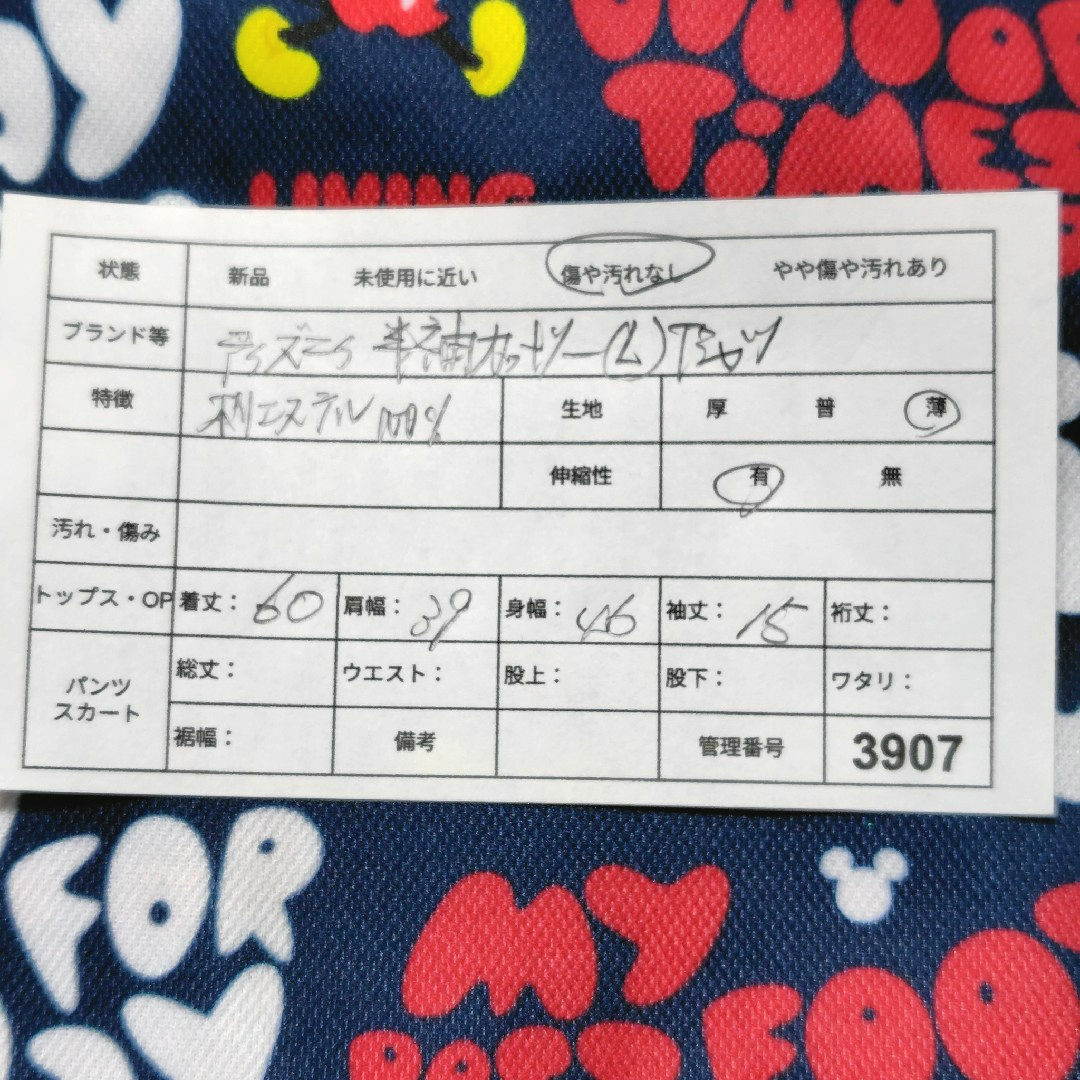 TiMES
LIMING
状態 新品 未使用に近い 傷や汚れなし やや傷や汚れあり
ブランド等 ディズニー 半袖カットソー(L)Tシャツ
特徴 ポリエステル100% 生地 厚 普 薄
伸縮性 有 無
汚れ・傷み
トップス・OP 着丈: 60 肩幅: 39 身幅: 46 袖丈: 15 裄丈:
パンツ スカート 総丈: ウエスト: 股上: 股下: ワタリ:
裾幅: 備考 管理番号 3907
FOR
MY
FOO